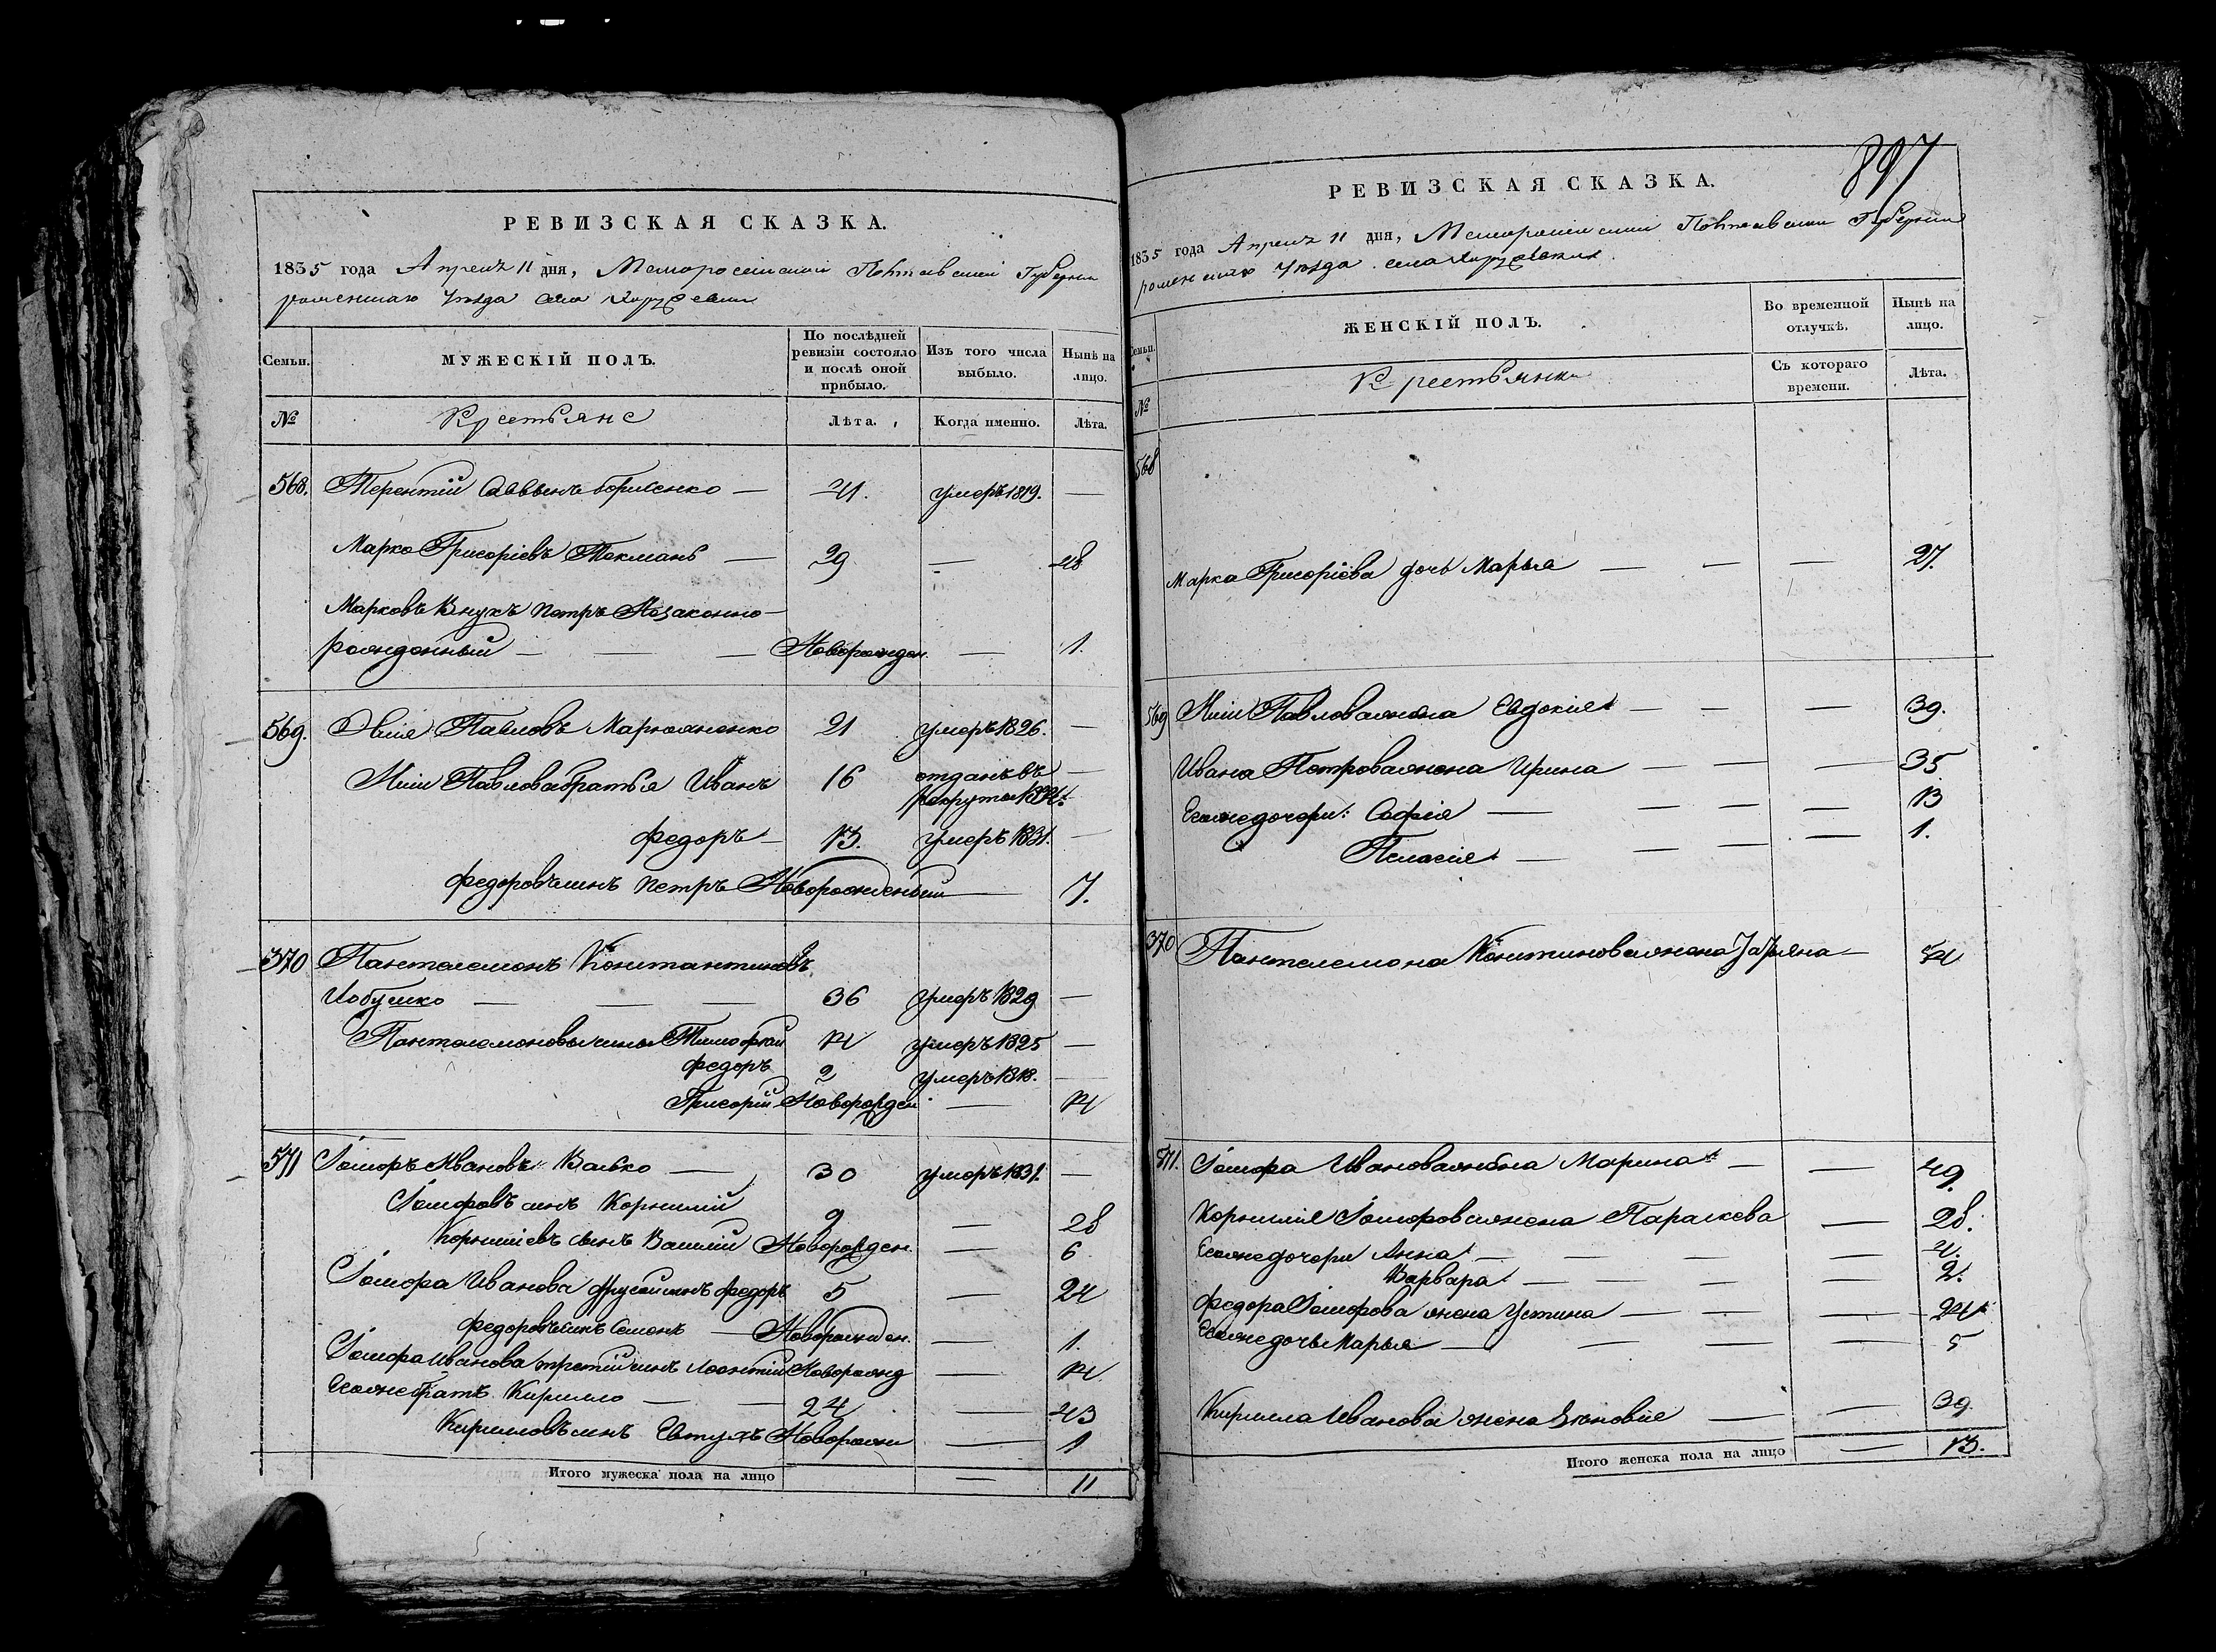 РЕВИЗСКАЯ СКАЗКА.
1835 года Апреля 11 дня, Малоросійской Полтавской Губерніи
роменскаго уезда села
Семьи.
МУЖЕСКІЙ ПОЛЪ.
По послѣдней ревизіи состояло и послѣ оной прибыло.
Изъ того числа выбыло.
Нынѣ на лицо.
№
Крестьяне
Лѣта.
Когда именно.
Лѣта.
568. Терентій Саввинъ Борисенко — 41. умеръ 1819. —
Марко Григоріевъ Токмань — 29 — 48
Марковъ внукъ Петръ Незаконно-
рожденный — — — Новорожден. — 1.
569. Илія Павловъ 21 умеръ 1826. —
Иліи Павлова братья Иванъ 16 отданъ въ —
рекруты
Федоръ — 13. умеръ 1831. —
Федоровъ сынъ Петръ Новорожденый — 7.
370 Пантелемонъ Константиновъ
— — — 36 умеръ 1829 —
Пантелемоновы сыны Тимофей 14 умеръ 1825 —
Федоръ 2 умеръ 1818. —
Григорій Новорожден — 14
571 Іосифъ Ивановъ Валько — 30 умеръ 1831. —
Іосифовъ сынъ Корнилій 9 — 28
Корниліевъ сынъ Василій Новорожден. — 6
Іосифа Иванова другой сынъ Федоръ 5 — 24
Федоровъ сынъ Семенъ — Новорожден. — 1.
Іосифа Иванова третій сынъ Леонтій Новорожд — 14
Его же братъ Кирилло — — 24 — 43
Кириловъ сынъ Евтухъ Новорожд — 1
Итого мужеска пола на лицо — 11
897
РЕВИЗСКАЯ СКАЗКА.
1835 года Апреля 11 дня, Малоросійской Полтавской Губерніи
роменскаго уезда села
Семьи.
ЖЕНСКІЙ ПОЛЪ.
Во временной отлучкѣ.
Нынѣ на лицо.
№
Крестьянки
Съ котораго времени.
Лѣта.
568
Марка Григоріева дочь Марья — — — 27.
569 Иліи Павлова жена Евдокія — — — 39.
Ивана Петрова жена Ирина — — — 35
Его же дочери: Софія — — — — 13
Пелагія — — — — 1.
370 Пантелемона жена Татьяна — 54
571. Іосифа Иванова жена Марина — — 49.
Корнилія Іосифова жена Параскева — 28.
Его же дочери Анна — — — — 4.
Варвара — — — — 2.
Федора Іосифова жена Устина — — — 24
Его же дочь Марья — — — — 5
Кирилла Иванова жена Зѣновія — — 39
Итого женска пола на лицо — 13.